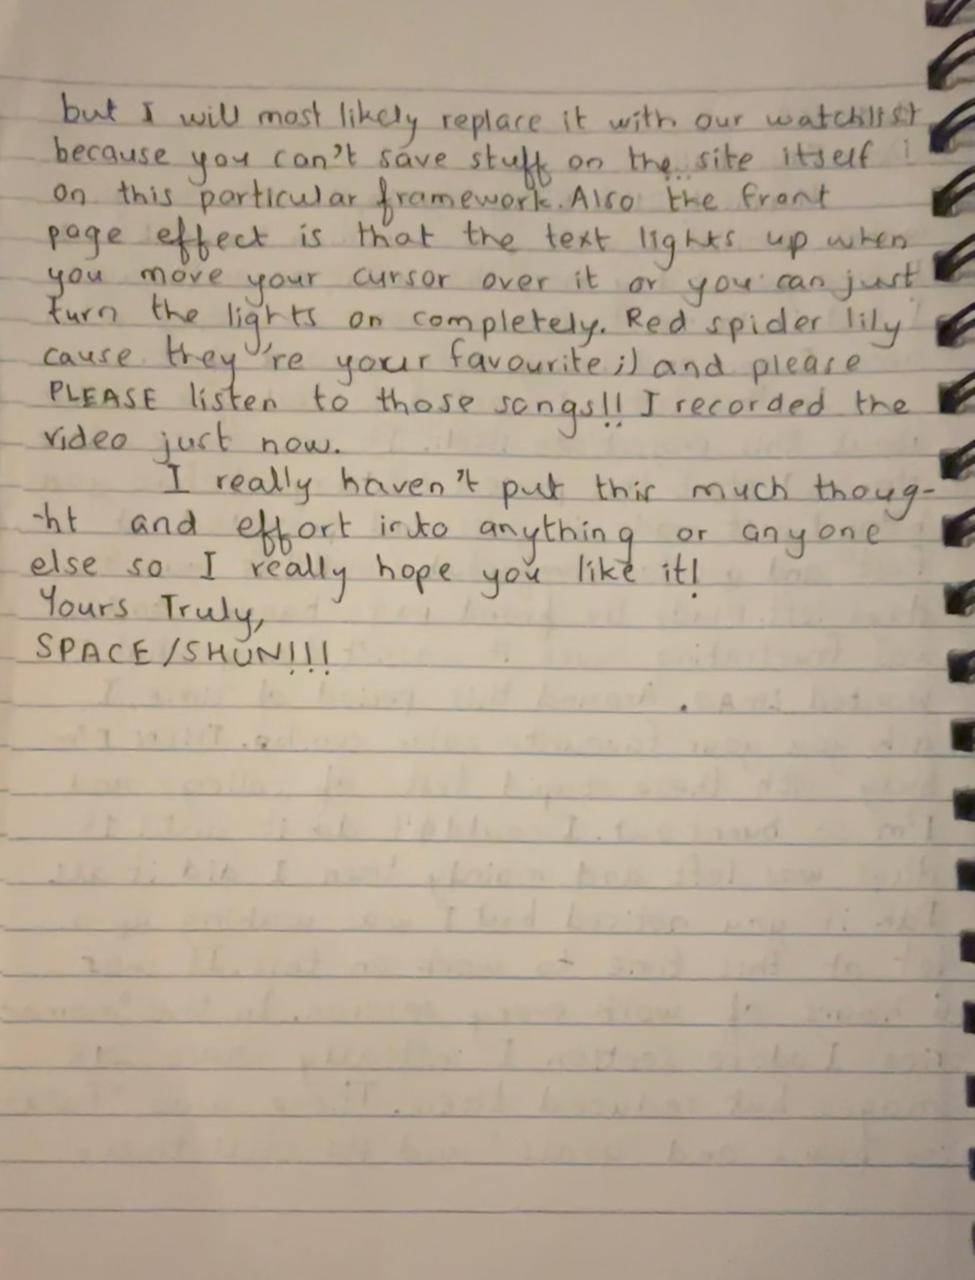 but I will most likely replace it with our watchlist
because you can't save stuff on the site itself
on this particular framework. Also the front
page effect is that the text lights up when
you move your cursor over it or you can just
turn the lights on completely. Red spider lily
cause they're your favourite ;) and please
PLEASE listen to those songs!! I recorded the
video just now.
I really haven't put this much thoug-
-ht and effort into anything or anyone
else so I really hope you like it!
Yours Truly,
SPACE/SHUN!!!